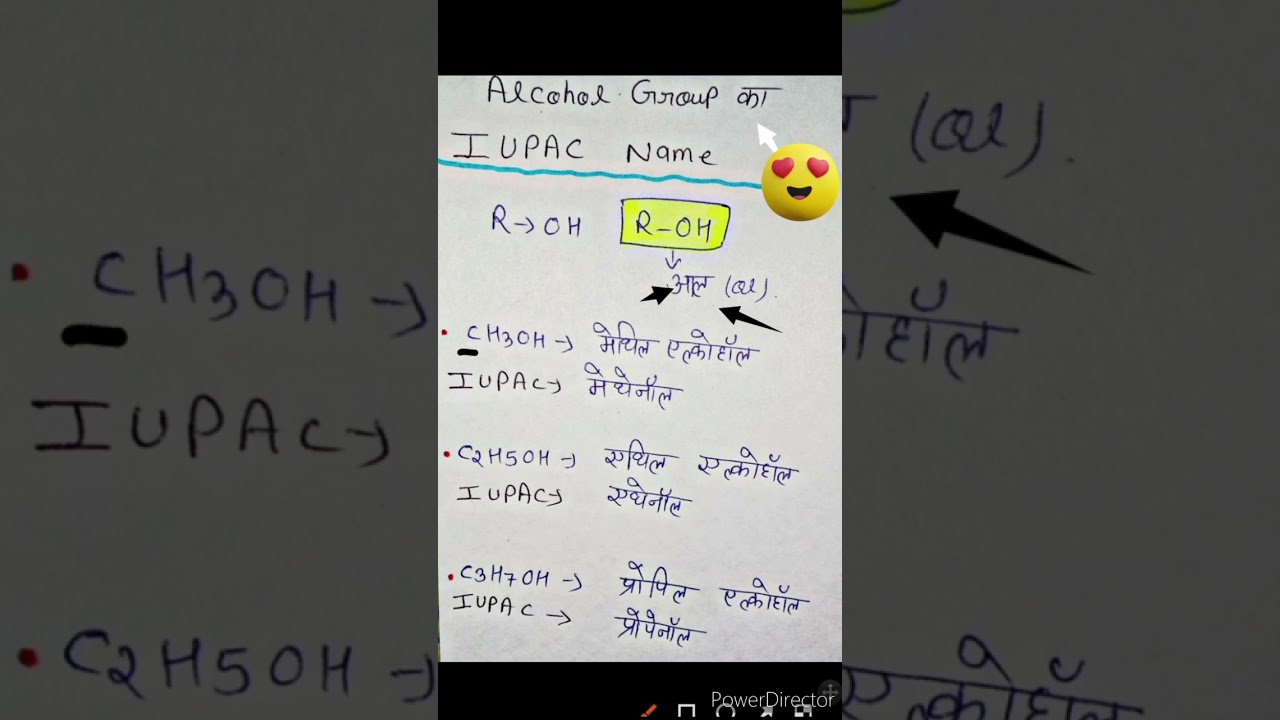 Alcohol Group का
IUPAC Name
R→OH R-OH
↓
आल (ol).
• CH3OH → मेथिल एल्कोहॉल
IUPAC → मेथेनॉल
• C2H5OH → एथिल एल्कोहॉल
IUPAC → एथेनॉल
• C3H7OH → प्रोपिल एल्कोहॉल
IUPAC → प्रोपेनॉल
(ol).
• CH3OH →
IUPAC →
• C2H5OH →
PowerDirector